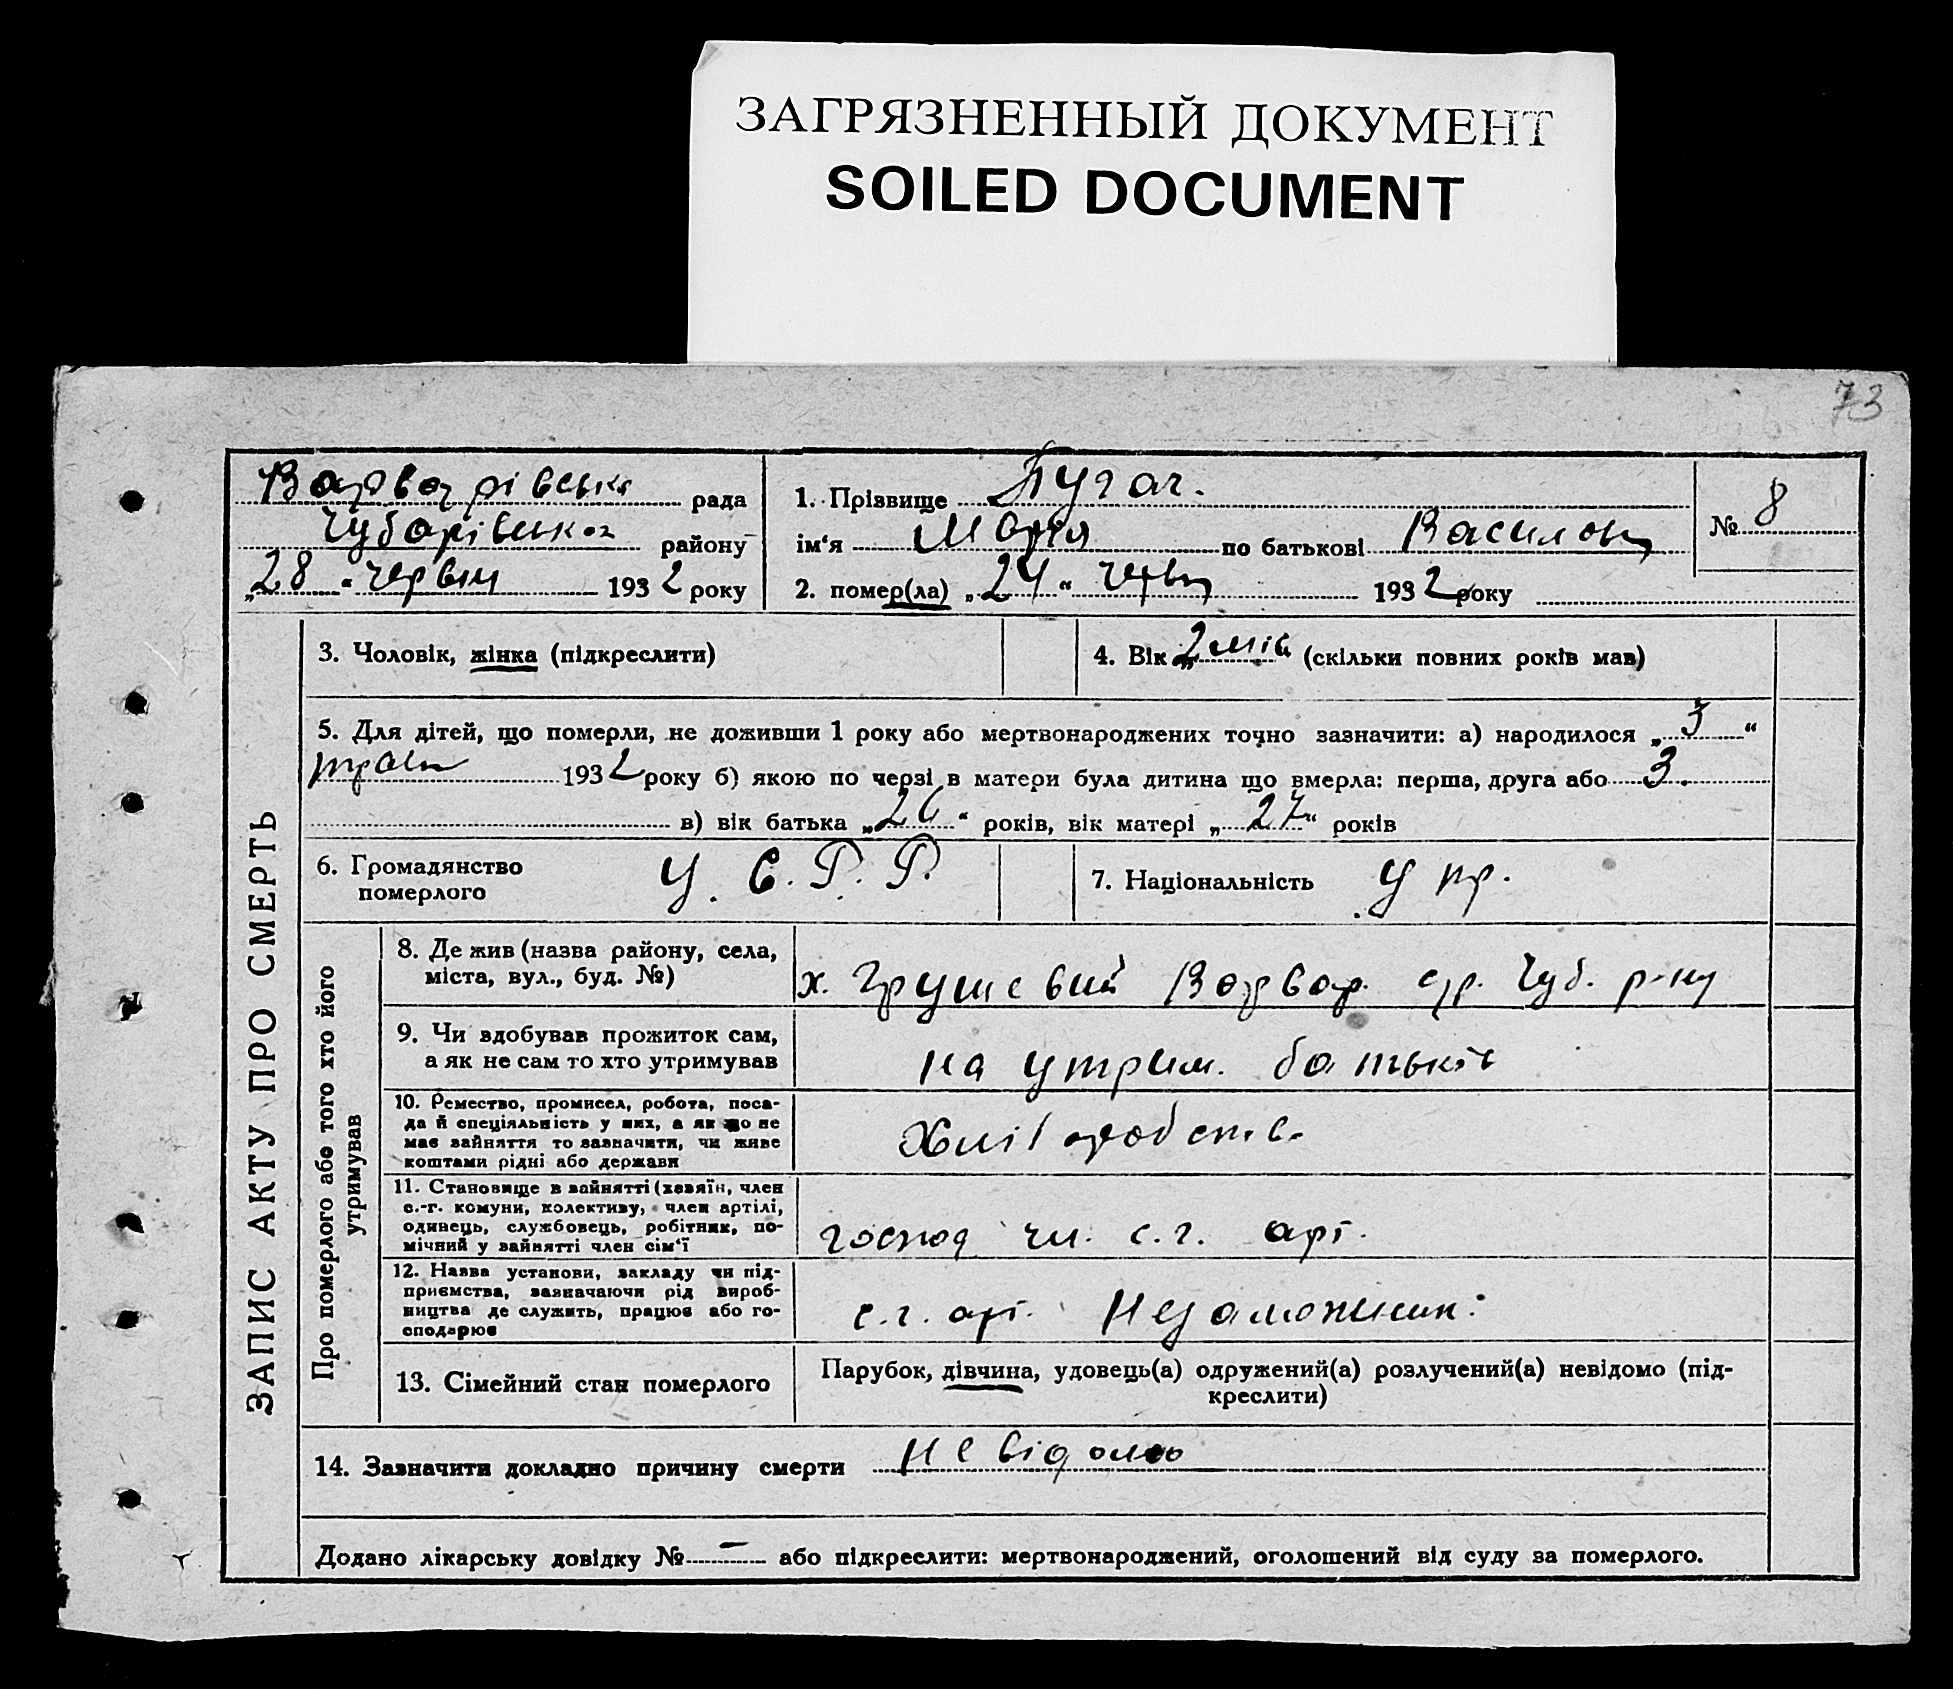 ЗАГРЯЗНЕННЫЙ ДОКУМЕНТ
SOILED DOCUMENT
73
Варварівська рада
Чубарівськог району
„28“ червня 1932 року
1. Прізвище Пугач.
ім‘я Марія по батькові Василів
2. помер(ла) „24“ червня 1932 року
№ 8
ЗАПИС АКТУ ПРО СМЕРТЬ
3. Чоловік, жінка (підкреслити)
4. Вік „2 міс (скільки повних років мав)
5. Для дітей, що померли, не доживши 1 року або мертвонароджених точно зазначити: а) народилося „3“
травн 1932 року б) якою по черзі в матери була дитина що вмерла: перша, друга або 3.
в) вік батька „26“ років, вік матері „27“ років
6. Громадянство
померлого
У. С. Р. Р.
7. Національність
Укр.
Про померлого або того хто його
утримував
8. Де жив (назва району, села,
міста, вул., буд. №)
х. Грушевий Варвар. с/р. Чуб. р-ну
9. Чи вдобував прожиток сам,
а як не сам то хто утримував
на утрим. батьків
10. Ремество, промисел, робота, поса-
да й спеціяльність у них, а як що не
має вайняття то зазначити, чи живе
коштами рідні або держави
Хліборобств.
11. Становище в вайнятті (хавяїн, член
с.-г. комуни, колективу, член артілі,
одинець, службовець, робітник, по-
мічний у вайнятті член сім‘ї
господ чл. с.г. арт.
12. Назва установи, закладу чи під-
приємства, вазначаючи рід вироб-
ництва де служить, працює або го-
сподарює
с.г. арт. Незаможник.
13. Сімейний стан померлого
Парубок, дівчина, удовець(а) одружений(а) розлучений(а) невідомо (під-
креслити)
14. Зазначити докладно причину смерти Невідомо
Додано лікарську довідку № — або підкреслити: мертвонароджений, оголошений від суду за померлого.